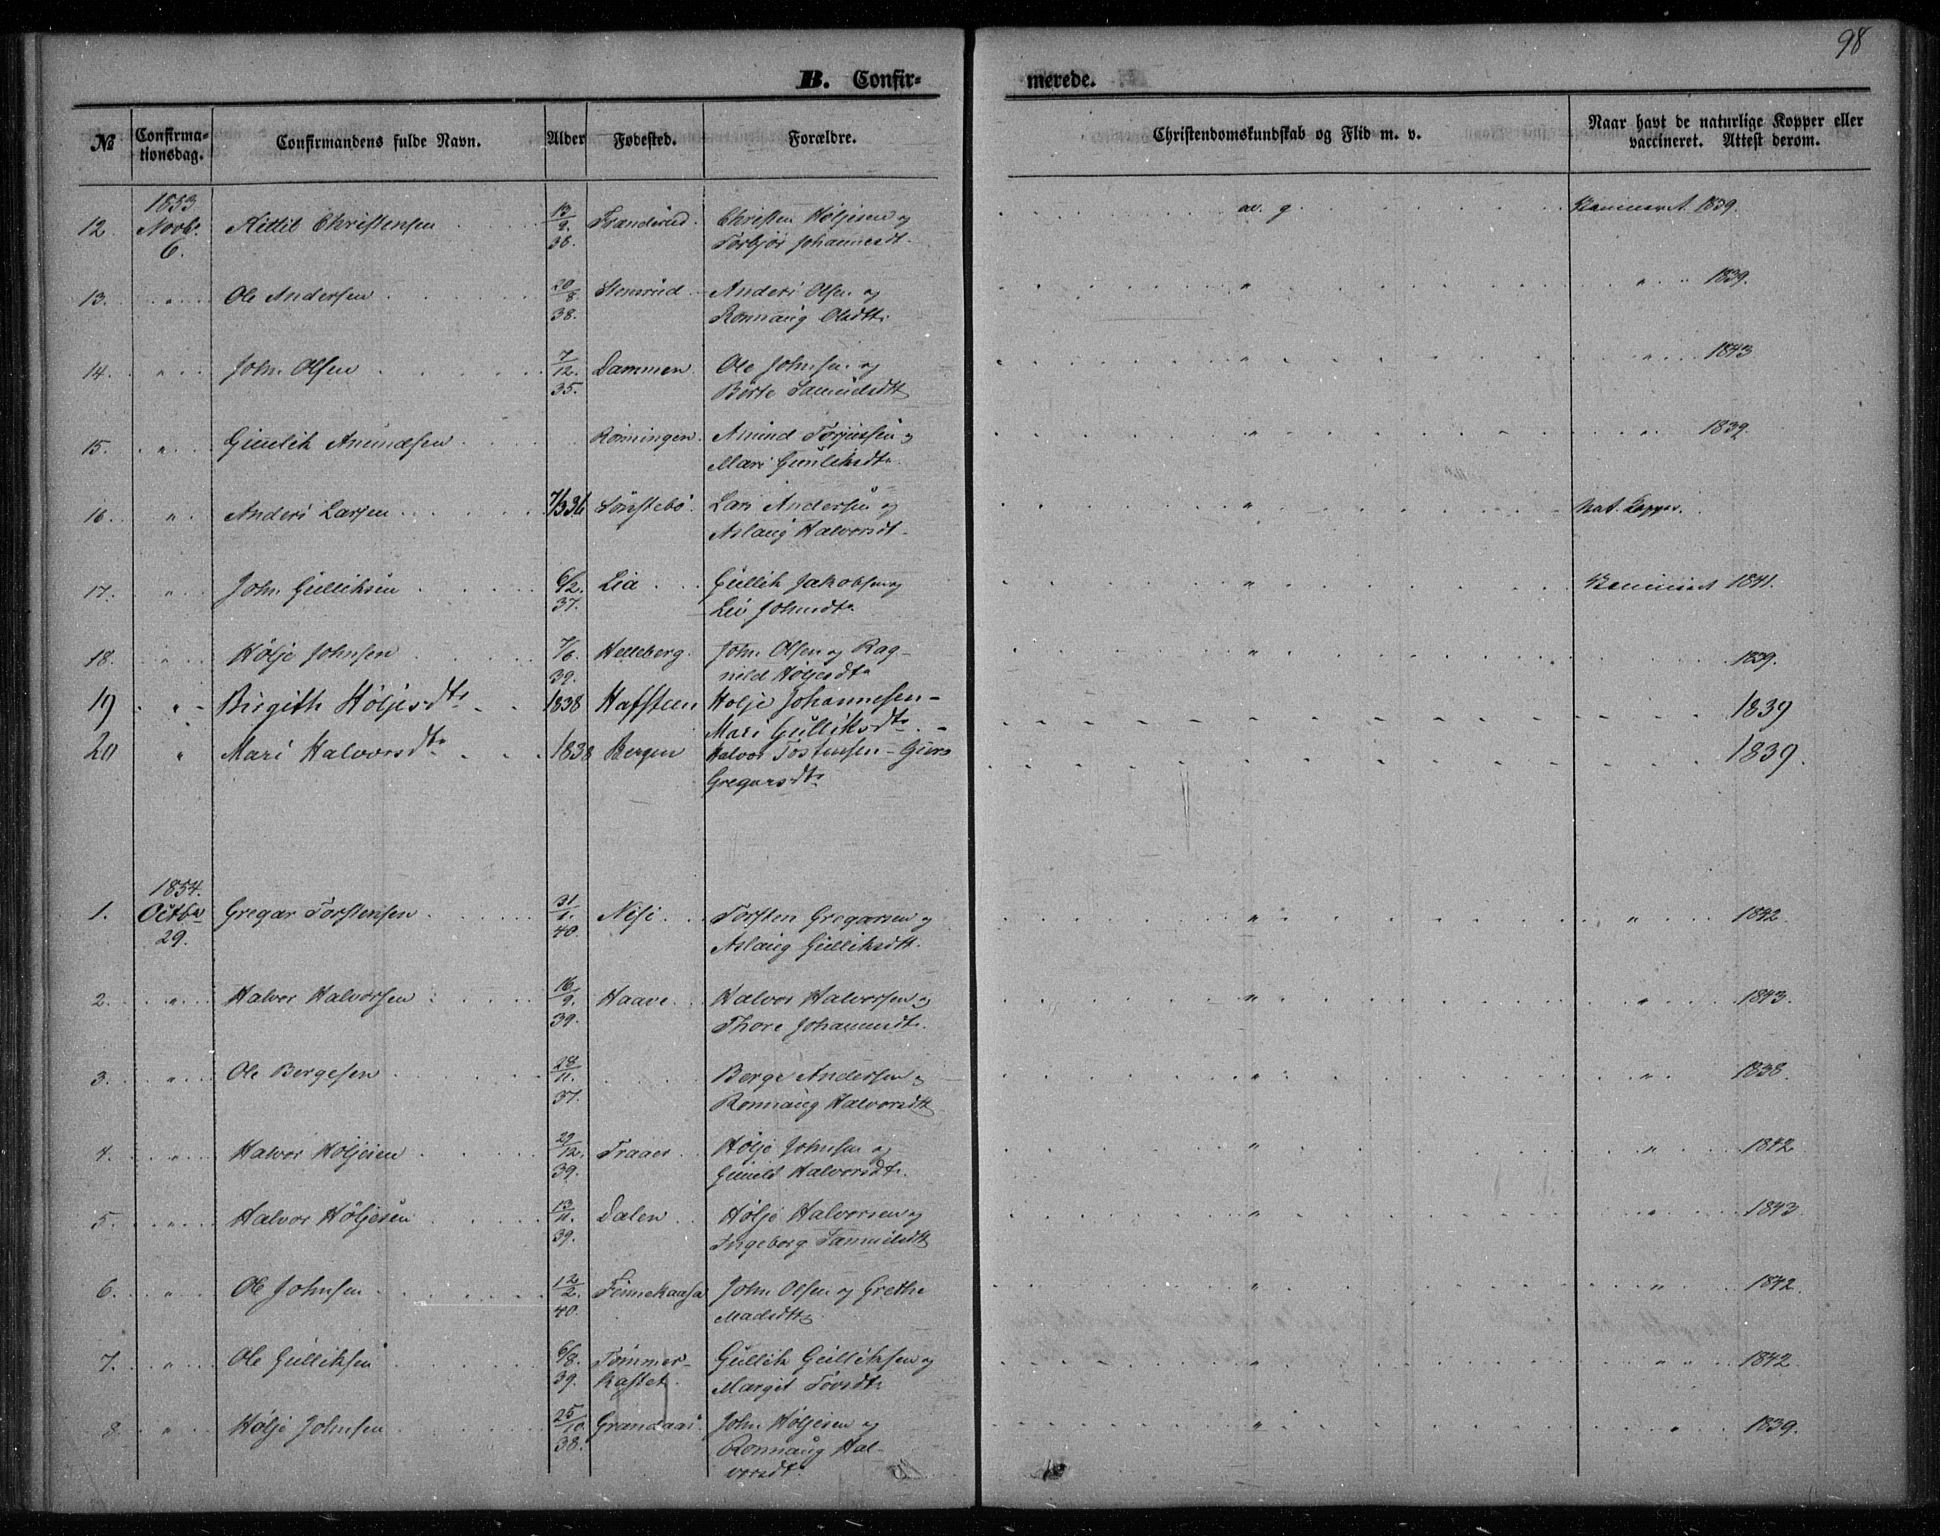 98
B. Confir-
merede.
№
Confirma-
tionsdag.
Confirmandens fulde Navn.
Alder
Fødested.
Forældre.
Christendomskundskab og Flid m. v.
Naar havt de naturlige Kopper eller
vaccineret. Attest derom.
1853
12. Novbr 6. Kittil Christensen 13/9 38. Tranderud. Christen Höljesen og
Torbjör Johannesdt. av. g. Vaccineret 1839.
13. " Ole Andersen 20/8 38. Stensrud Anders Olsen og
Ronnaug Olsdtr. " " 1839.
14. " John Olsen 7/12. 35. Dammen Ole Johnsen og
Börte Samuelsdtt " " 1843
15. " Gunlik Amundsen Rönningen Amund Torjussen og
Mari Gunleksdtr. " " 1839.
16 " Anders Larsen 7/3 36 Sönstebö Lars Andersen og
Aslaug Halvorsdt. " Nat. Kopper.
17. " John Gulliksen 6/2. 37. Lia Gullik Jakobsen og
Liv Johnsdtr " Vaccineret 1841.
18. " Hölje Johnsen 7/6. 39. Helleberg. John Olsen og Rag-
nild Höljesdtr " 1839.
19 " Birgith Höljesdtr 1838 Hafsteen Holje Johannesen -
Mari Gulliksdtr. 1839
20 " Mari Halvorsdtr 1838 Bergen Halvor Tostensen - Guro
Gregarsdtr 1839.
1854.
1. Octbr 29. Gregar Torstensen 31/1. 40. Nisi Torsten Gregarsen og
Aslaug Gulliksdtt. " " 1842
2. " Halvor Halvorsen 16/9. 39. Haave Halvor Halvorsen og
Thore Johannesdtr. " " 1843.
3. " Ole Bergesen 28/11. 37. Berge Andersen og
Ronnaug Halvorsdtt " " 1838.
4. " Halvor Höljesen 29/12. 39. Traaen Hölje Johnsen og
Gunild Halvorsdtr. " " 1842
5. " Halvor Höljesen 13/11. 39. Dalen Hölje Halvorsen og
Ingeborg Samuelsdtt " " 1843.
6. " Ole Johnsen 12/2. 40. Finnekaasa John Olsen og Grethe
Madsdtt " " 1842.
7. " Ole Gulliksen 6/8. 39. Tömmer-
kastet. Gullik Gulliksen og
Margit Tovsdtr " " 1842.
8. " Hölje Johnsen 25/10. 38. Grandaas John Höljesen og
Ronnaug Hal-
vorsdt. " " 1839.